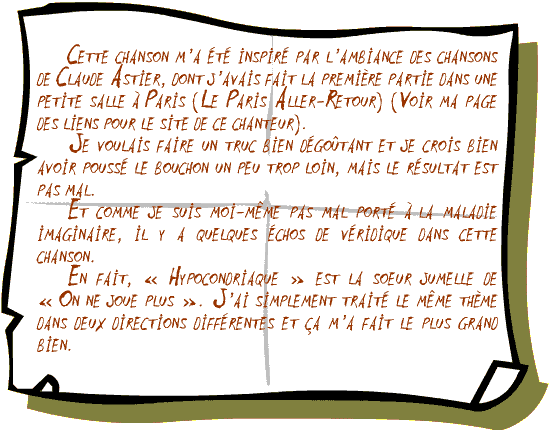 Cette chanson m'a été inspiré par l'ambiance des chansons
de Claude Astier, dont j'avais fait la première partie dans une
petite salle à Paris (Le Paris Aller-Retour) (Voir ma page
des liens pour le site de ce chanteur).
Je voulais faire un truc bien dégoûtant et je crois bien
avoir poussé le bouchon un peu trop loin, mais le résultat est
pas mal.
Et comme je suis moi-même pas mal porté à la maladie
imaginaire, il y a quelques échos de véridique dans cette
chanson.
En fait, « Hypocondriaque » est la soeur jumelle de
« On ne joue plus ». J'ai simplement traité le même thème
dans deux directions différentes et ça m'a fait le plus grand
bien.